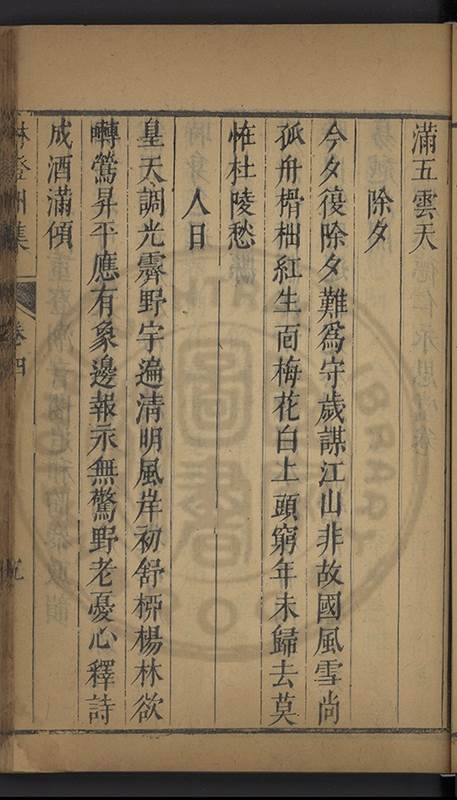 滿五雲天
除夕
今夕復除夕難爲守歲謀江山非故國風雪尚
孤舟榾柮紅生面梅花白上頭窮年未歸去莫
惟杜陵愁
人日
皇天調光霽野宇遍清明風岸初舒柳楊林欲
囀鶯昇平應有象邊報示無驚野老憂心釋詩
成酒滿傾
卷四